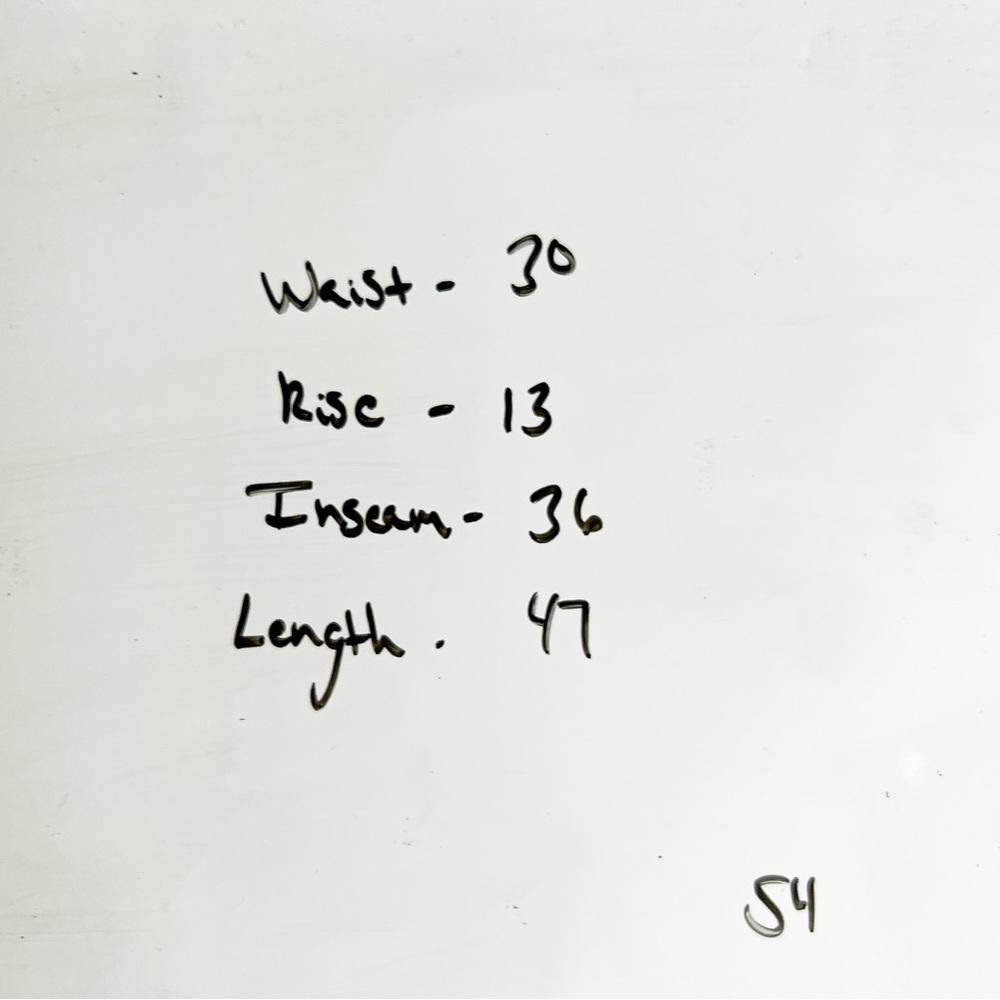 Waist - 30
Rise - 13
Inseam - 36
Length . 47
54